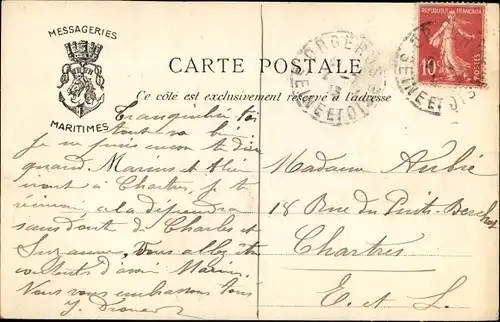 MESSAGERIES
MARITIMES
CARTE POSTALE
Ce côté est exclusivement réservé à l'adresse
ORGERUS
SEINE ET OISE
REPUBLIQUE FRANÇAISE
10c
POSTES
SEINE ET OISE
Tranquilise toi
tout va bien
je ne puis encore te dire
quand Marius et
iront à Chartres, je te
cela dépendra
sans doute de Charles et
Suzanne, Vous allez être
contents d'avoir Marius.
Nous vous embrassons tous
Madame Aubié
18 Rue du Puits-Berchot
Chartres
E. et L.